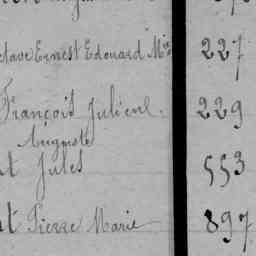 ctave Ernest Edouard M 227
François Julien 229
Auguste
t Jules 553
t Pierre Marie 897